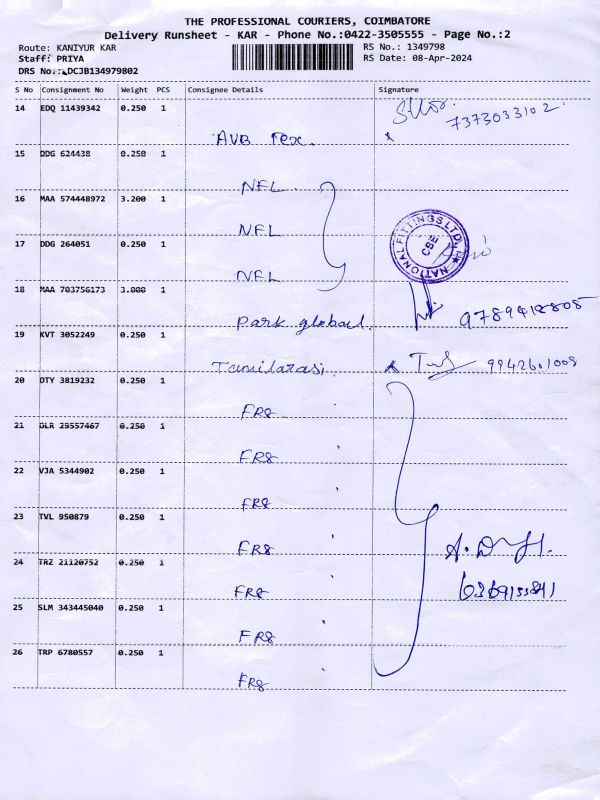 THE PROFESSIONAL COURIERS, COIMBATORE
Delivery Runsheet - KAR - Phone No.:0422-3505555 - Page No.:2
Route: KANIYUR KAR
RS No.: 1349798
Staff: PRIYA
RS Date: 08-Apr-2024
DRS No.: DCJB134979802
S No Consignment No Weight PCS Consignee Details Signature
14 EDQ 11439342 0.250 1
7373033102
AVB Tex.
15 DDG 624438 0.250 1
NFL
16 MAA 574448972 3.200 1
NFL
NATIONAL FITTINGS LTD.
CBE
17 DDG 264051 0.250 1
NFL
18 MAA 703756173 3.000 1
Park global
19 KVT 3052249 0.250 1
Tamilarasi
9942601009
20 DTY 3819232 0.250 1
FR8
21 DLR 29557467 0.250 1
FR8
22 VJA 5344902 0.250 1
FR8
23 TVL 950879 0.250 1
FR8
24 TRZ 21120752 0.250 1
FR8
25 SLM 343445040 0.250 1
FR8
26 TRP 6780557 0.250 1
FR8